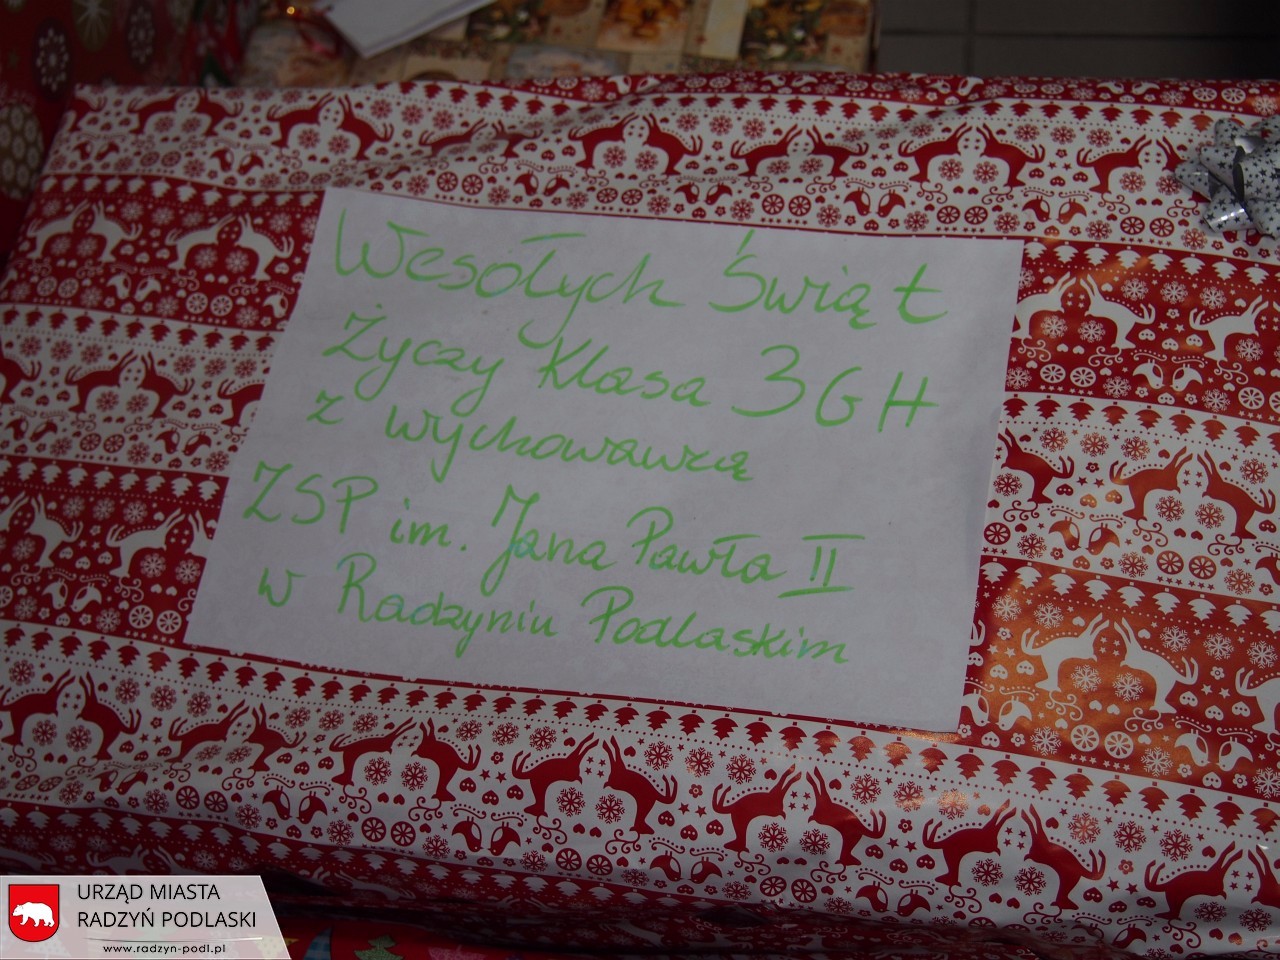 Wesołych Świąt
Życzy Klasa 3GH
z wychowawcą
ZSP im. Jana Pawła II
w Radzyniu Podlaskim
URZĄD MIASTA
RADZYŃ PODLASKI
www.radzyn-podl.pl